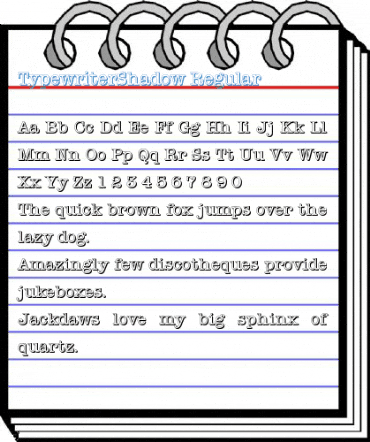 TypewriterShadow Regular
Aa Bb Cc Dd Ee Ff Gg Hh Ii Jj Kk Ll
Mm Nn Oo Pp Qq Rr Ss Tt Uu Vv Ww
Xx Yy Zz 1 2 3 4 5 6 7 8 9 0
The quick brown fox jumps over the
lazy dog.
Amazingly few discotheques provide
jukeboxes.
Jackdaws love my big sphinx of
quartz.